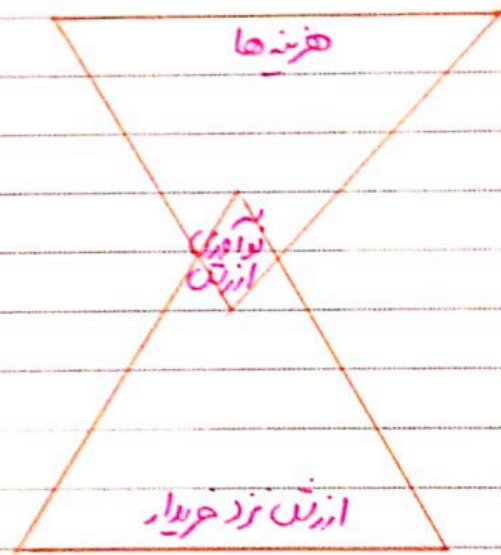 هزینه ها
نوآوری
ارزش
ارزش نزد خریدار